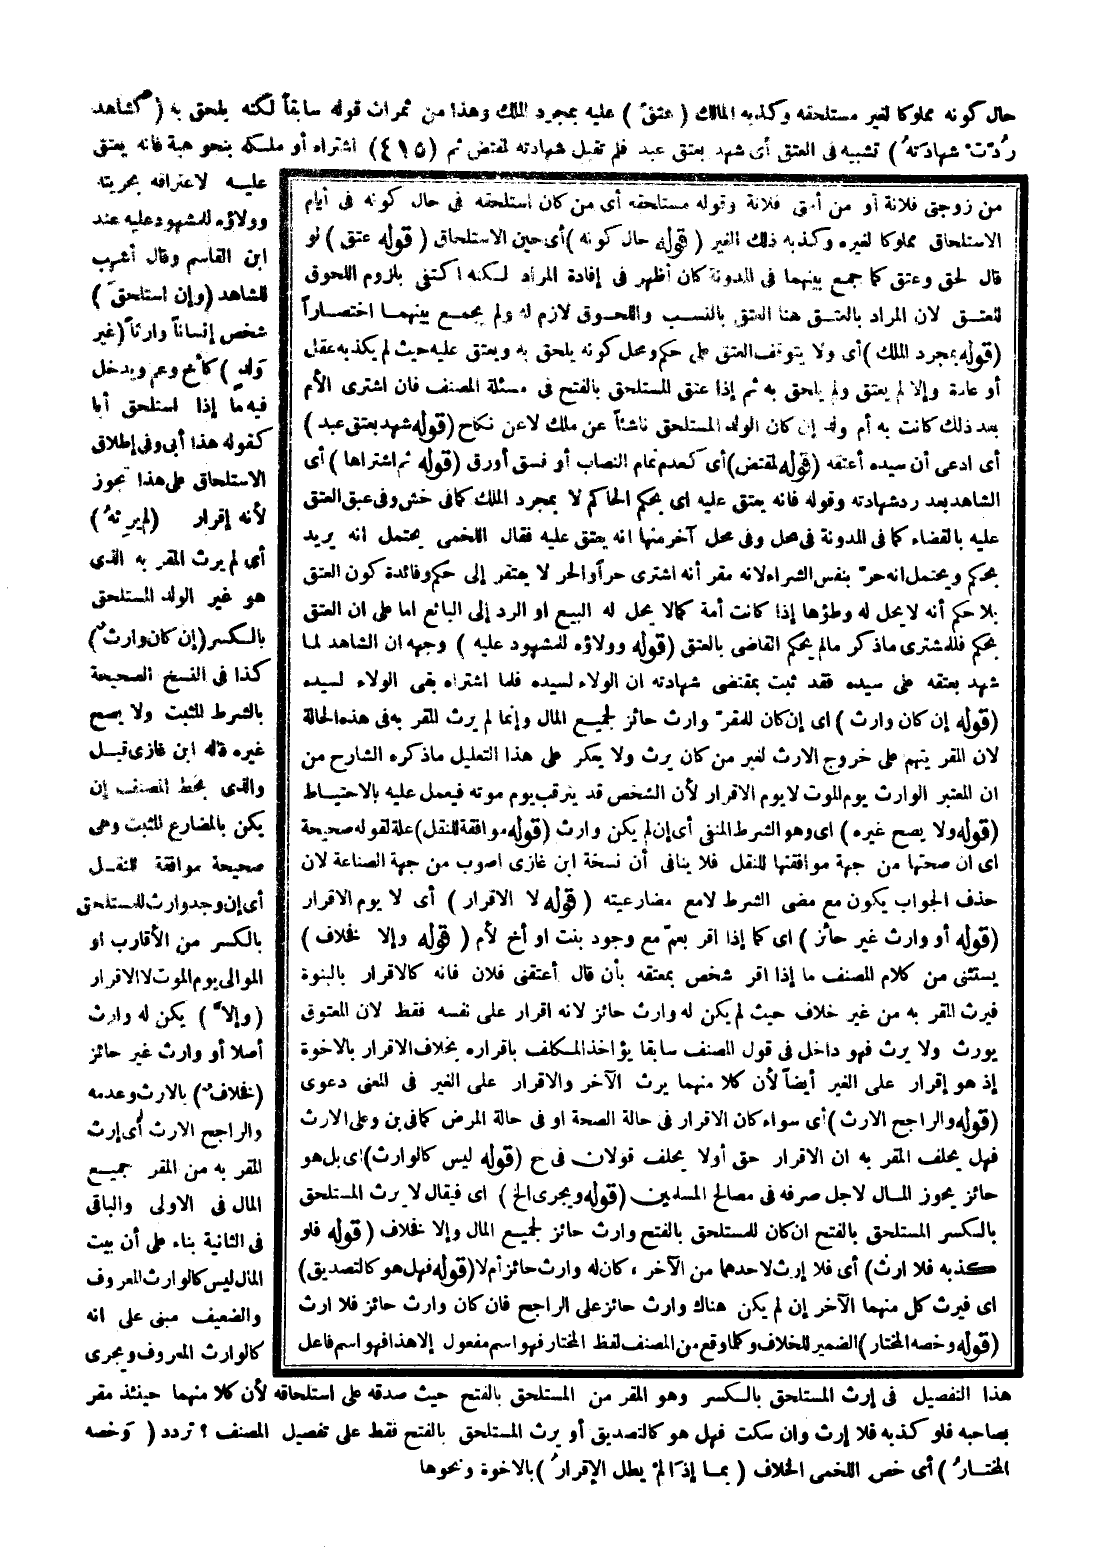 حال كونه مملوكا لغير مستلحقه وكذبه المالك ( عتقَ ) عليه بمجرد الملك وهذا من ثمرات قوله سابقاً لكنه يلحق به ( كشاهد
رُدّتْ شهادتهُ ) تشبيه فى العتق أى شهد بعتق عبد فلم تقبل شهادته لمقتض ثم (٤١٥) اشتراه أو ملكه بنحو هبة فانه يعتق
عليـه لاعترافه بحريته
وولاؤه للمشهود عليه عند
ابن القاسم وقال أشهب
للشاهد (وإن استلحقَ )
شخص إنساناً وارثاً (غير
ولدٍ ) كأخ وعم ويدخل
فيه ما إذا استلحق أبا
كقوله هذا أبى وفى إطلاق
الاستلحاق على هذا تجوز
لأنه إقرار (لم يرثهُ )
أى لم يرث المقر به الذى
هو غير الولد المستلحق
بالكسر (إن كان وارثٌ)
كذا فى النسخ الصحيحة
بالشرط المثبت ولا يصح
غيره قاله ابن غازى قيـل
والذى بخط المصنف إن
يكن بالمضارع المثبت وهى
صحيحة موافقة للنقـل
أى إن وجد وارث للمستلحق
بالكسر من الأقارب او
الموالى يوم الموت لا الاقرار
(وإلاّ ) يكن له وارث
أصلا أو وارث غير حائز
(فخلافٌ) بالارث وعدمه
والراجح الارث أى إرث
المقر به من المقر جميـع
المال فى الاولى والباقى
فى الثانية بناء على أن بيت
المال ليس كالوارث المعروف
والضعيف مبنى على انه
كالوارث المعروف ويجرى
من زوجتى فلانة أو من أمتى فلانة وقوله مستلحقه أى من كان استلحقه فى حال كونه فى أيام
الاستلحاق مملوكا لغيره وكذبه ذلك الغير ( قوله حال كونه ) أى حين الاستلحاق ( قوله عتق ) لو
قال لحق وعتق كما جمع بينهما فى المدونة كان أظهر فى إفادة المراد لـكنه اكتفى بلزوم اللحوق
للعتـق لان المراد بالعتـق هنا العتق بالنسب واللحـوق لازم له ولم يجمع بينهمـا اختصـاراً
(قوله بمجرد الملك ) أى ولا يتوقف العتق على حكم ومحل كونه يلحق به ويعتق عليه حيث لم يكذبه عقل
أو عادة وإلا لم يعتق ولم يلحق به ثم إذا عتق المستلحق بالفتح فى مسئلة المصنف فان اشترى الأم
بعد ذلك كانت به أم ولد إن كان الولد المستلحق ناشئاً عن ملك لا عن نكاح (قوله شهد بعتق عبد )
أى ادعى أن سيده أعتقه (قوله لمقتض) أى كعدم تمام النصاب أو فسق أورق (قوله ثم اشتراها ) أى
الشاهد بعد رد شهادته وقوله فانه يعتق عليه اى بحكم الحاكم لا بمجرد الملك كما فى خش وفى عبق العتق
عليه بالقضاء كما فى المدونة فى محل وفى محل آخر منها انه يعتق عليه فقال اللخمى يحتمل انه يريد
بحكم ويحتمل انه حرّ بنفس الشراء لانه مقر أنه اشترى حراً والحر لا يفتقر إلى حكم وفائدة كون العتق
بلا حكم أنه لا يحل له وطؤها إذا كانت أمة كما لا يحل له البيع او الرد إلى البائع اما على ان العتق
بحكم فللمشترى ماذكر مالم يحكم القاضى بالعتق (قوله وولاؤه للمشهود عليه ) وجهه ان الشاهد لما
شهد بعتقه على سيده فقد ثبت بمقتضى شهادته ان الولاء لسيده فلما اشتراه بقى الولاء لسيده
(قوله إن كان وارث ) اى إن كان للمقرّ وارث حائز لجميع المال وإنما لم يرث المقر به فى هذه الحالة
لان المقر يتهم على خروج الارث لغير من كان يرث ولا يعكر على هذا التعليل ماذكره الشارح من
ان المعتبر الوارث يوم الموت لا يوم الاقرار لأن الشخص قد يترقب يوم موته فيعمل عليه بالاحتيـاط
(قوله ولا يصح غيره ) اى وهو الشرط المنفى أى إن لم يكن وارث (قوله موافقة للنقل) علة لقوله صحيحة
اى ان صحتها من جهة موافقتها للنقل فلا ينافى أن نسخة ابن غازى اصوب من جهة الصناعة لان
حذف الجواب يكون مع مضى الشرط لا مع مضارعيته ( قوله لا الاقرار ) أى لا يوم الاقرار
(قوله أو وارث غير حائز ) اى كما إذا اقر بعمّ مع وجود بنت او أخ لأم ( قوله وإلا فخلاف )
يستثنى من كلام المصنف ما إذا اقر شخص بمعتقه بأن قال أعتقنى فلان فانه كالاقرار بالبنوة
فيرث المقر به من غير خلاف حيث لم يكن له وارث حائز لانه اقرار على نفسه فقط لان المعتوق
يورث ولا يرث فهو داخل فى قول المصنف سابقا يؤاخذ المكلف باقراره بخلاف الاقرار بالاخوة
إذ هو إقرار على الغير أيضاً لأن كلا منهما يرث الآخر والاقرار على الغير فى المعنى دعوى
(قوله والراجح الارث) أى سواء كان الاقرار فى حالة الصحة او فى حالة المرض كما فى بن وعلى الارث
فهل يحلف المقر به ان الاقرار حق أولا يحلف قولان فى ح (قوله ليس كالوارث) اى بل هو
حائز يحوز المـال لاجل صرفه فى مصالح المسلمين (قوله ويجرى الخ ) اى فيقال لا يرث المستلحق
بالكسر المستلحق بالفتح ان كان للمستلحق بالفتح وارث حائز لجميع المال وإلا فخلاف ( قوله فلو
كذبه فلا ارث) أى فلا إرث لاحدهما من الآخر ، كان له وارث حائز أم لا (قوله فهل هو كالتصديق)
اى فيرث كل منهما الآخر إن لم يكن هناك وارث حائز على الراجح فان كان وارث حائز فلا ارث
(قوله وخصه المختار ) الضمير للخلاف وكلما وقع من المصنف لفظ المختار فهو اسم مفعول إلا هذا فهو اسم فاعل
هذا التفصيل فى إرث المستلحق بالـكسر وهو المقر من المستلحق بالفتح حيث صدقه على استلحاقه لأن كلا منهما حينئذ مقر
بصاحبه فلو كذبه فلا إرث وان سكت فهل هو كالتصديق أو يرث المستلحق بالفتح فقط على تفصيل المصنف ؟ تردد ( وَخصه
المختـارُ ) أى خص اللخمى الخلاف ( بمـا إذَا لمْ يطل الإقرارُ ) بالاخوة ونحوها